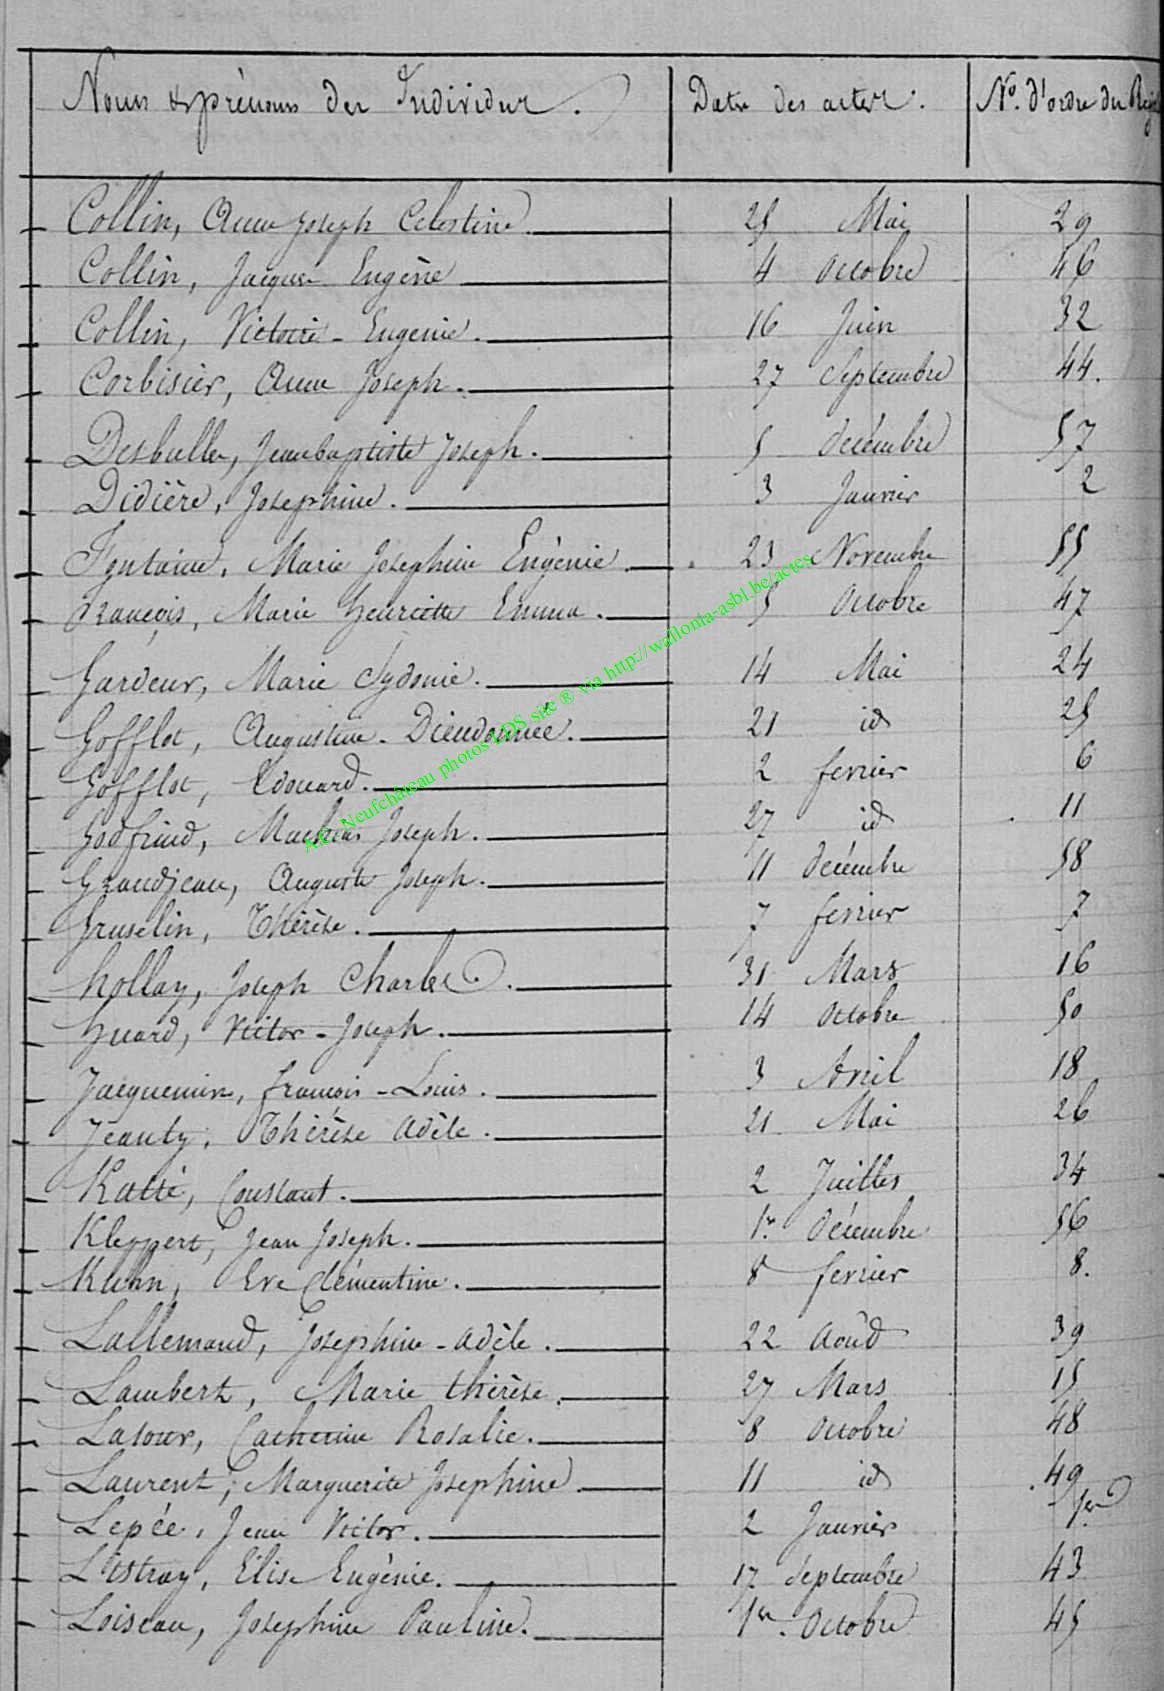 Noms & prénoms des Individus. Date des actes. No. d'ordre du Reg
Collin, Anne Joseph Celestine. 25 Mai 29
Collin, Jacques Eugène 4 Octobre 46
Collin, Victoire - Eugenie. 16 Juin 32
Corbisier, Anne Joseph. 27 Septembre 44.
Desbulles, Jean baptiste Joseph. 5 décembre 57
Didière, Josephine. 3 Janvier 2
Fontaine, Marie Josephine Eugénie. 23 Novembre 55
François, Marie Henriette Emma. 5 Octobre 47
Gardeur, Marie Sydonie. 14 Mai 24
Gofflot, Augustine - Dieudonnée. 21 id 25
Gofflot, Edouard. 2 fevrier 6
Godfrind, Mathias Joseph. 27 id 11
Grandjean, Auguste Joseph. 11 décembre 58
Gruselin, Thérèse. 7 fevrier 7
hollay, Joseph Charles. 31 Mars 16
Huard, Victor - Joseph. 14 Octobre 50
Jacquemin, françois - Louis. 3 Avril 18
Jeanty, Thérèse Adèle. 21 Mai 26
Katté, Constant. 2 Juillet 34
Kleppert, Jean Joseph. 1r. décembre 56
Kuhn, Eve Clémentine. 8 fevrier 8.
Lallemand, Josephine - Adèle. 22 Août 39
Lambert, Marie thérèse. 27 Mars 15
Latour, Catherine Rosalie. 8 Octobre 48
Laurent, Marguerite Josephine 11 id 49
Lepée, Jean Victor. 2 Janvier 1er
Listray, Elise Eugénie. 17 Septembre 43
Loiseau, Josephine Pauline. 1er. Octobre 45
A.E. Neufchâteau photos LDS site ® via http://wallonia-asbl.be/actes